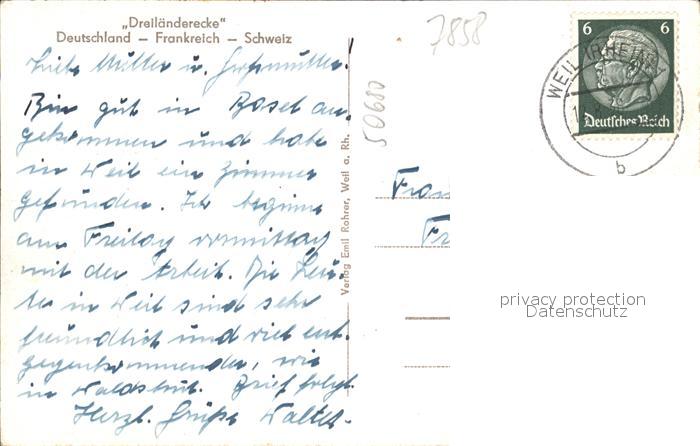 „Dreiländerecke“
Deutschland — Frankreich — Schweiz
7858
50680
Liebe Mutter u. Großmutter!
Bin gut in Basel an-
gekommen und habe
in Weil ein Zimmer
gefunden. Ich beginne
am Freitag vormittag
mit der Arbeit. Die Leu-
te in Weil sind sehr
freundlich und viel ent-
gegenkommender, wie
in Waldshut. Brief folgt.
Herzl. Grüße Walter.
Verlag Emil Rohrer, Weil a. Rh.
6 6
Deutsches Reich
WEIL (RHEIN)
b
Frau
Fr
privacy protection
Datenschutz